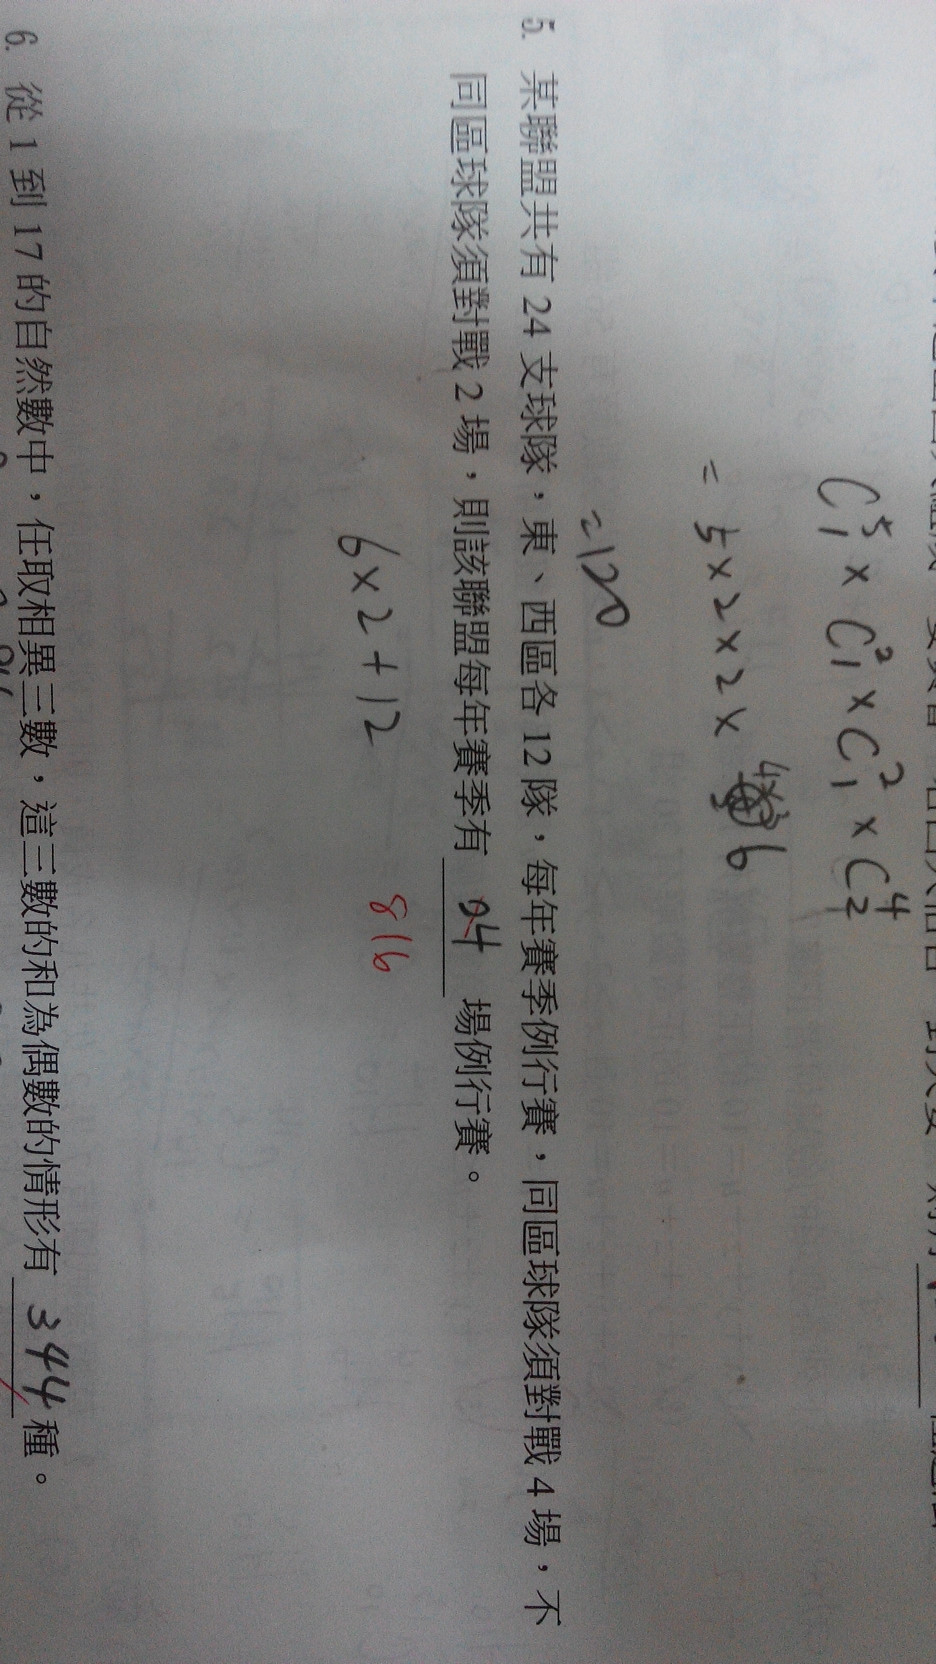 C⁵₁ × C²₁ × C²₁ × C⁴₂
= 5 × 2 × 2 × 6
= 120
5. 某聯盟共有 24 支球隊，東、西區各 12 隊，每年賽季例行賽，同區球隊須對戰 4 場，不
同區球隊須對戰 2 場，則該聯盟每年賽季有 94 場例行賽。
816
6 × 2 + 12
6. 從 1 到 17 的自然數中，任取相異三數，這三數的和為偶數的情形有 344 種。